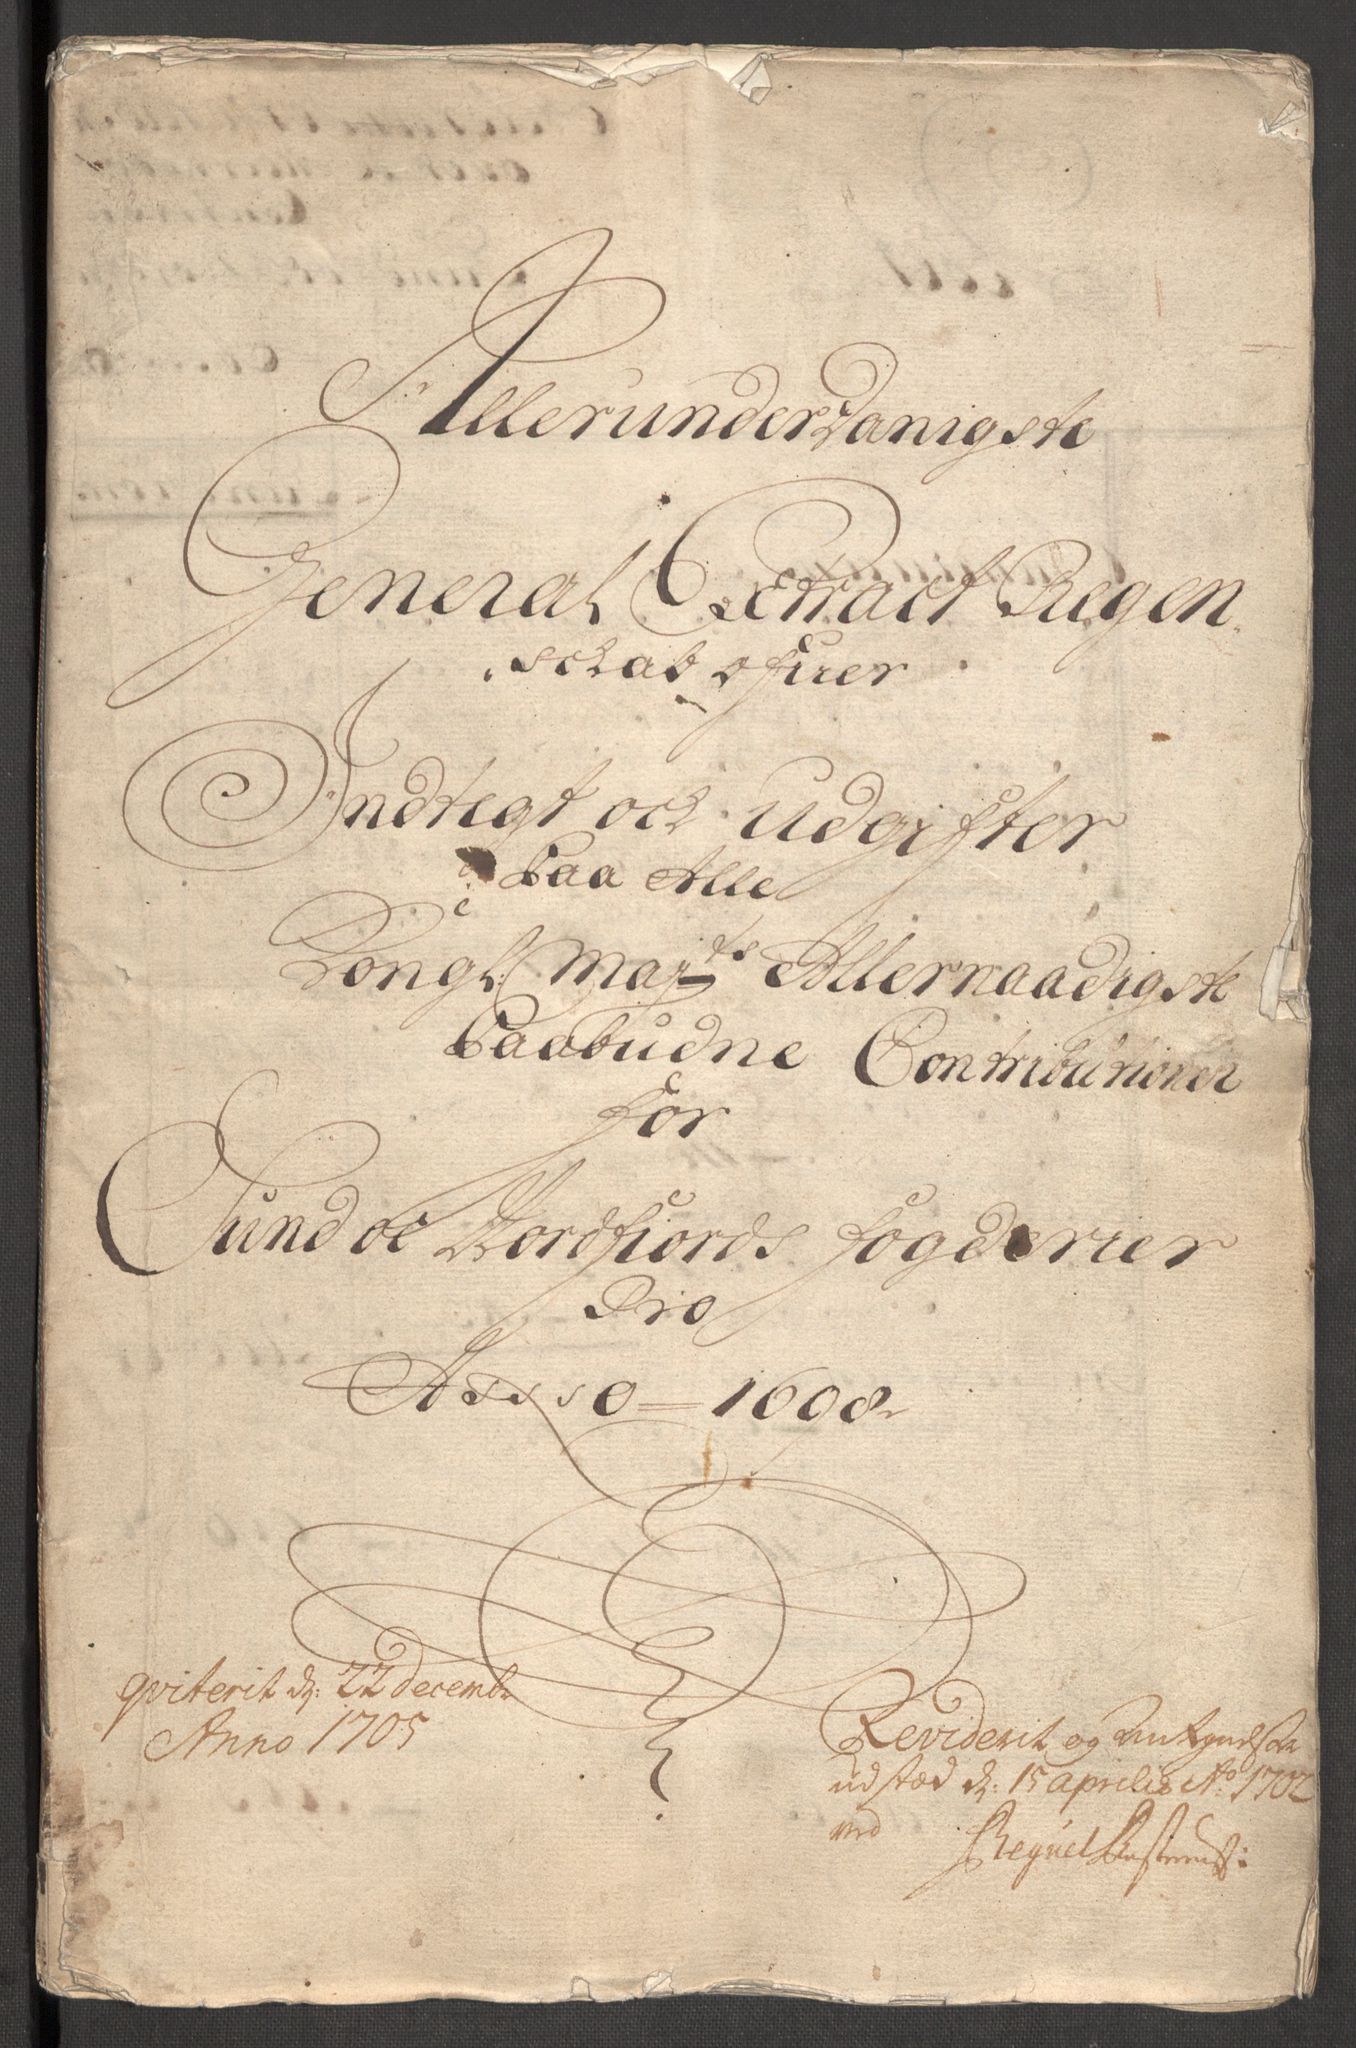 Allerunderdanigste
General Extract Regen
schab ofuer
Indtegt och Udgifter
Paa Alle
Kongl. Mayts Allernaadigste
Paabudne Contributioner
for
Sund oc Nordfiords fogderier
Pro
Anno 1698
qviterit d: 22 decembr
Anno 1705
Reviderit og
udstæd d: 15 aprilis Ao 1702
ved